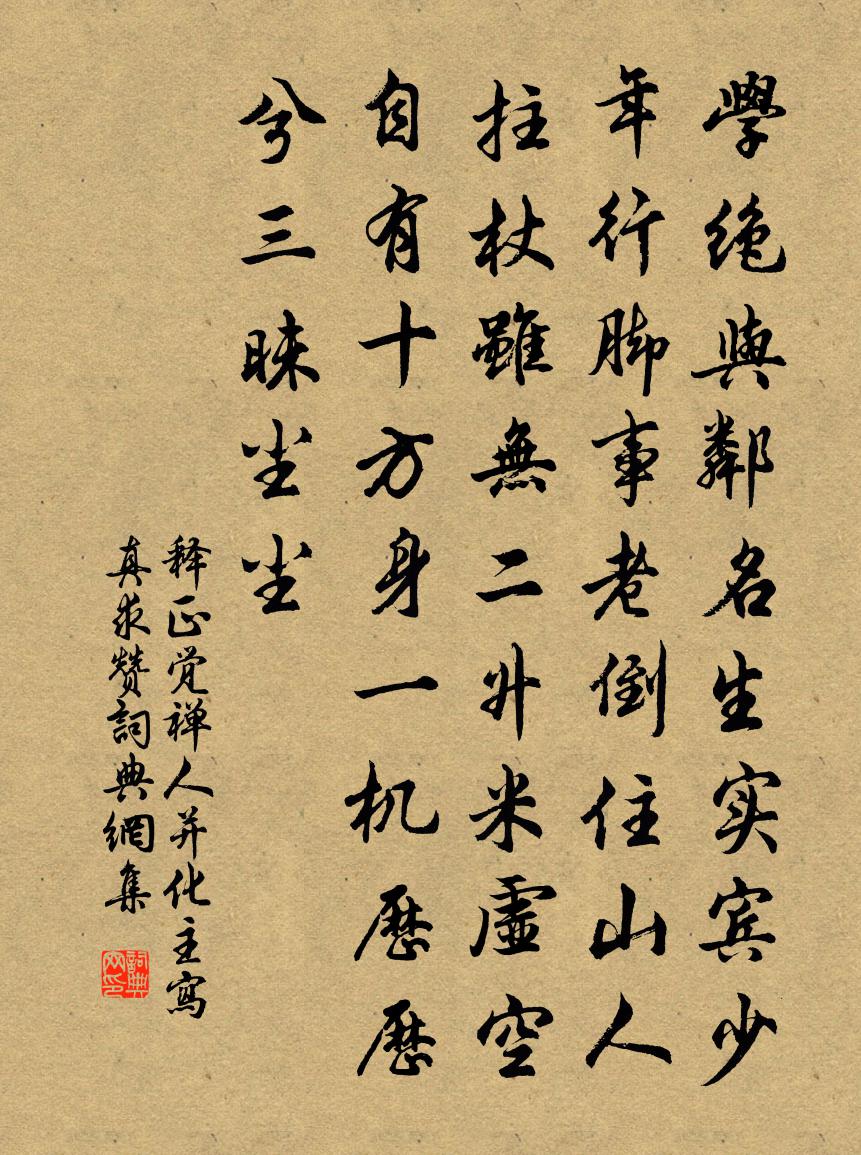 學绝與鄰名生实賓少
年行脚事老倒住山人
拄杖雖無二升米虛空
自有十方身一机歷歷
兮三昧尘尘
释正觉禅人并化主寫
真求赞詞典網集
詞典网印